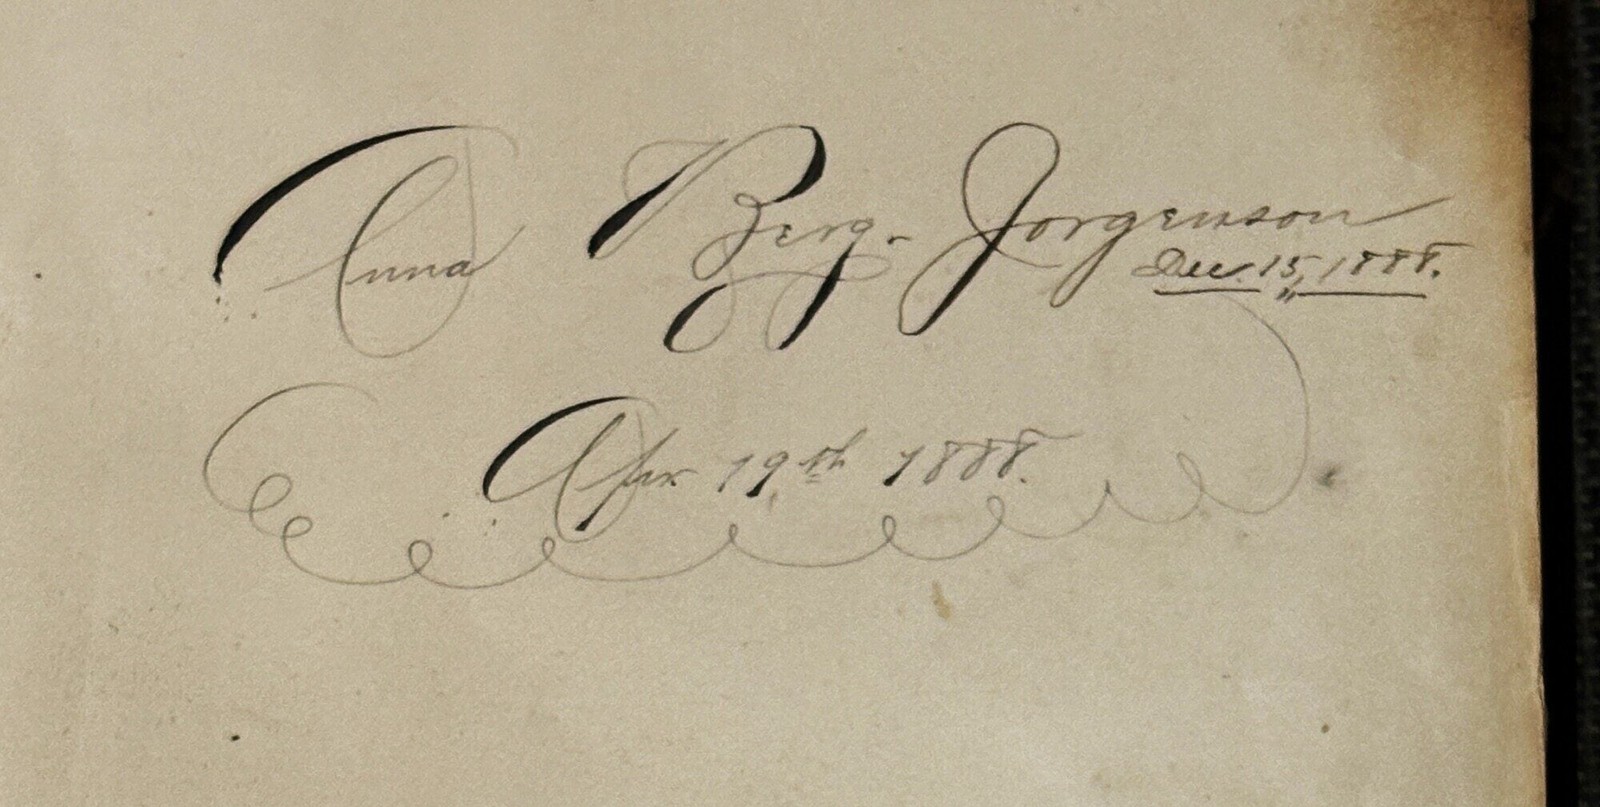 Anna Berg-Jorgenson
Dec. 15, 1888.
Apr 19th 1888.